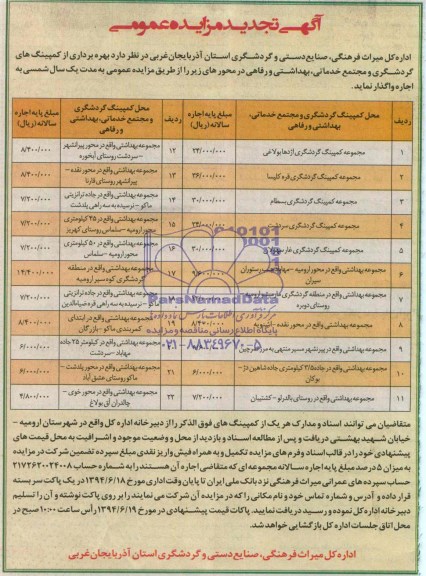 آگهی تجدید مزایده عمومی
اداره کل میراث فرهنگی، صنایع‌دستی و گردشگری استان آذربایجان‌غربی در نظر دارد بهره برداری از کمپینگ های
گردشگری و مجتمع خدماتی، بهداشتی و رفاهی در محورهای زیر را از طریق مزایده عمومی به مدت یک سال شمسی به
اجاره واگذار نماید.
ردیف محل کمپینگ گردشگری و مجتمع خدماتی، بهداشتی و رفاهی مبلغ پایه اجاره سالانه (ریال) ردیف محل کمپینگ گردشگری و مجتمع خدماتی، بهداشتی و رفاهی مبلغ پایه اجاره سالانه (ریال)
۱ مجموعه کمپینگ گردشگری اژدها بولاغی ۲۴/۰۰۰/۰۰۰ ۱۲ مجموعه بهداشتی واقع در محور پیرانشهر – سردشت روستای آبخوره ۸/۴۰۰/۰۰۰
۲ مجموعه کمپینگ گردشگری قره کلیسا ۳۶/۰۰۰/۰۰۰ ۱۳ مجموعه بهداشتی واقع در محور نقده – پیرانشهر روستای قارنا ۸/۴۰۰/۰۰۰
۳ مجموعه کمپینگ گردشگری بسطام ۳۰/۰۰۰/۰۰۰ ۱۴ مجموعه بهداشتی واقع در جاده ترانزیتی ماکو – نرسیده به سه راهی پلدشت ۷/۲۰۰/۰۰۰
۴ مجموعه کمپینگ گردشگری ۱۵ مجموعه بهداشتی واقع در ۴۵ کیلومتری محور ارومیه – سلماس روستای کهریز ۷/۲۰۰/۰۰۰
۵ مجموعه کمپینگ گردشگری ۳۰/۰۰۰/۰۰۰ ۱۶ مجموعه بهداشتی واقع در ۵۰ کیلومتری محور ارومیه – سلماس ۷/۲۰۰/۰۰۰
۶ مجموعه بهداشتی واقع در محور ارومیه – مهاباد رستوران سیران ۱۷ مجموعه بهداشتی واقع در منطقه گردشگری کوه سیر ارومیه ۱۴/۴۰۰/۰۰۰
۷ مجموعه بهداشتی واقع در منطقه گردشگری روستای دوبره مجموعه بهداشتی واقع در جاده ترانزیتی ماکو نرسیده به سه راهی قره ضیاءالدین ۷/۲۰۰/۰۰۰
۸ مجموعه بهداشتی واقع در محور نقده – اشنویه ۸/۴۰۰/۰۰۰ مجموعه بهداشتی واقع در ابتدای کمربندی ماکو – بازرگان ۸/۴۰۰/۰۰۰
۹ مجموعه بهداشتی واقع در پیرانشهر مسیر منتهی به مرز تمرچین مجموعه بهداشتی واقع در کیلومتر ۲۵ جاده مهاباد – سردشت ۶/۰۰۰/۰۰۰
۱۰ مجموعه بهداشتی واقع در جاده ۲/۵ کیلومتری جاده شاهین دژ – بوکان ۶/۰۰۰/۰۰۰ ۲۱ مجموعه بهداشتی واقع در محور پلدشت – ماکو روستای عشق آباد ۶/۰۰۰/۰۰۰
۱۱ مجموعه بهداشتی واقع در روستای بالدرلو – کشتیبان ۷/۲۰۰/۰۰۰ ۲۲ مجموعه بهداشتی واقع در محور خوی – چالدران آق بولاغ ۴/۸۰۰/۰۰۰
ParsNamadData
پایگاه اطلاع رسانی مناقصه و مزایده
۰۲۱-۸۸۳۴۹۶۷۰-۵
متقاضیان می توانند اسناد و مدارک هر یک از کمپینگ های فوق الذکر را از دبیرخانه اداره کل واقع در شهرستان ارومیه –
خیابان شهید بهشتی دریافت و پس از مطالعه اسناد و بازدید از محل و وضعیت موجود و اشرافیت به محل قیمت های
پیشنهادی خود را در قالب اسناد و فرم های مزایده تکمیل و به همراه فیش واریز نقدی مبلغ سپرده تضمین شرکت در مزایده
به میزان ۵ درصد مبلغ پایه اجاره سالانه مجموعه ای که متقاضی اجاره آن هستند را به شماره حساب ۲۱۷۲۶۲۰۰۲۴۰۰۸
حساب سپرده های عمرانی میراث فرهنگی نزد بانک ملی ایران تا پایان وقت اداری مورخ ۱۳۹۴/۶/۱۸ در یک پاکت سر بسته
قرار داده و آدرس و شماره تماس خود و نام مکانی را که در مزایده آن شرکت می نمایند را بر روی پاکت نوشته و آن را تسلیم
دبیرخانه اداره کل نموده و رسید دریافت نمایند. پاکات قیمت پیشنهادی در مورخ ۱۳۹۴/۶/۱۹ رأس ساعت ۱۰:۰۰ صبح در
محل اتاق جلسات اداره کل بازگشایی خواهد شد.
اداره کل میراث فرهنگی، صنایع‌دستی و گردشگری استان آذربایجان‌غربی